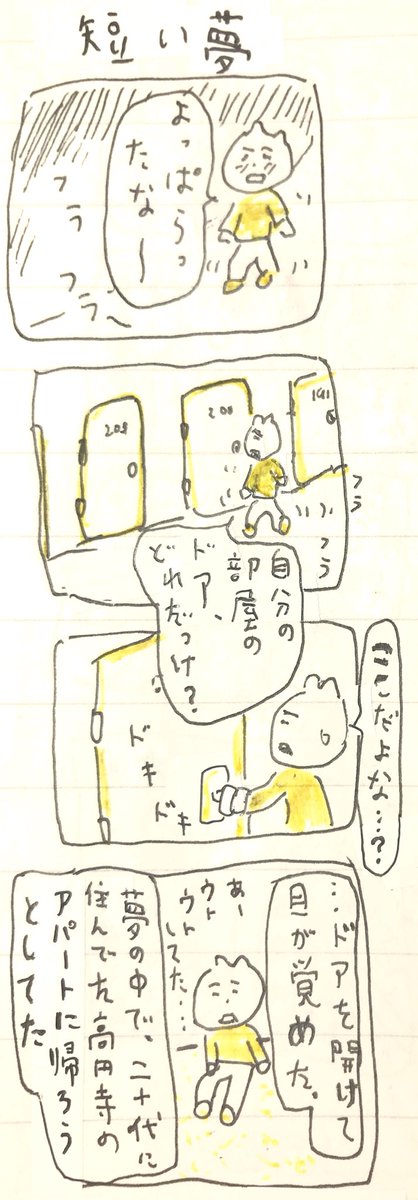 短い夢
よっぱらっ
たな〜
フラ
フラ〜
191
200
208
フラ
フラ
自分の
部屋の
ドア、
どれだっけ?
ここだよな…?
ドキ
ドキ
…ドアを開けて
目が覚めた。
あー
ウト
ウトしてた……
夢の中で、二十代に
住んでた高円寺の
アパートに帰ろう
としてた